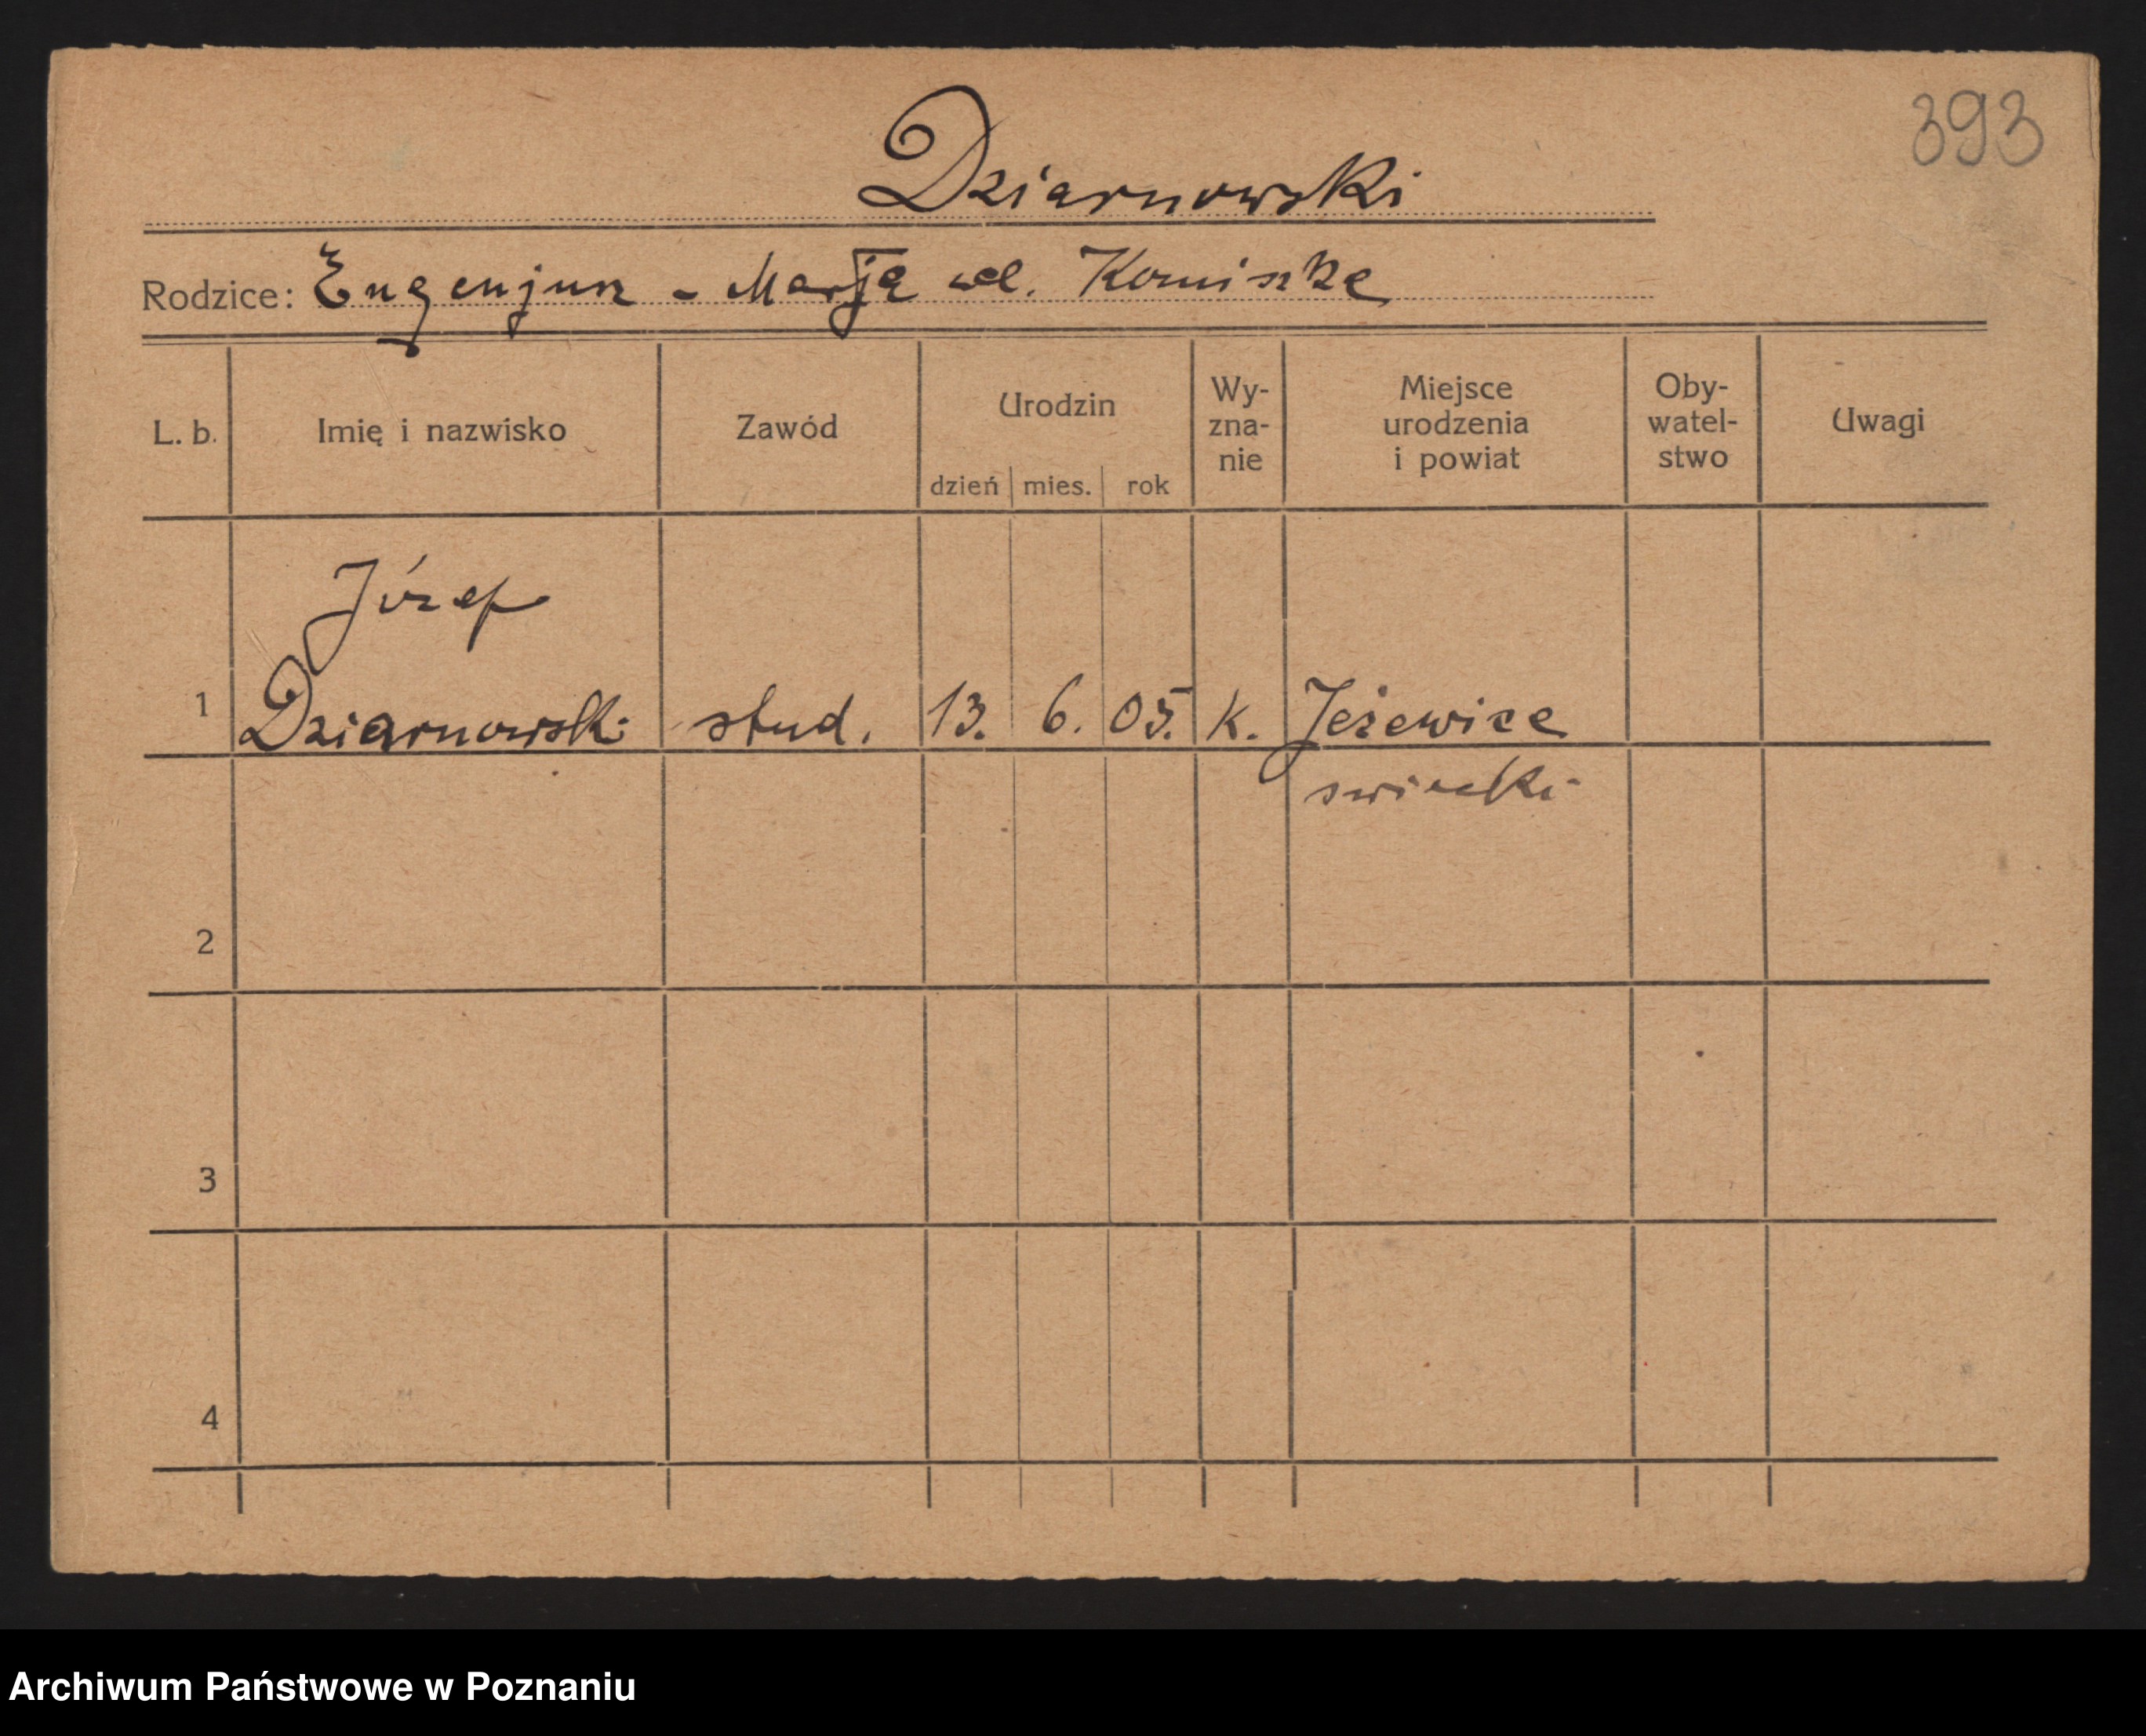 393
Dziarnowski
Rodzice: Eugenjusz - Marja
L. b. Imię i nazwisko Zawód Urodzin Wy- Miejsce Oby- Uwagi
zna- urodzenia watel-
nie i powiat stwo
dzień mies. rok
Józef
1 Dziarnowski stud. 13. 6. 05. K. Jeżewice
2
3
4
Archiwum Państwowe w Poznaniu